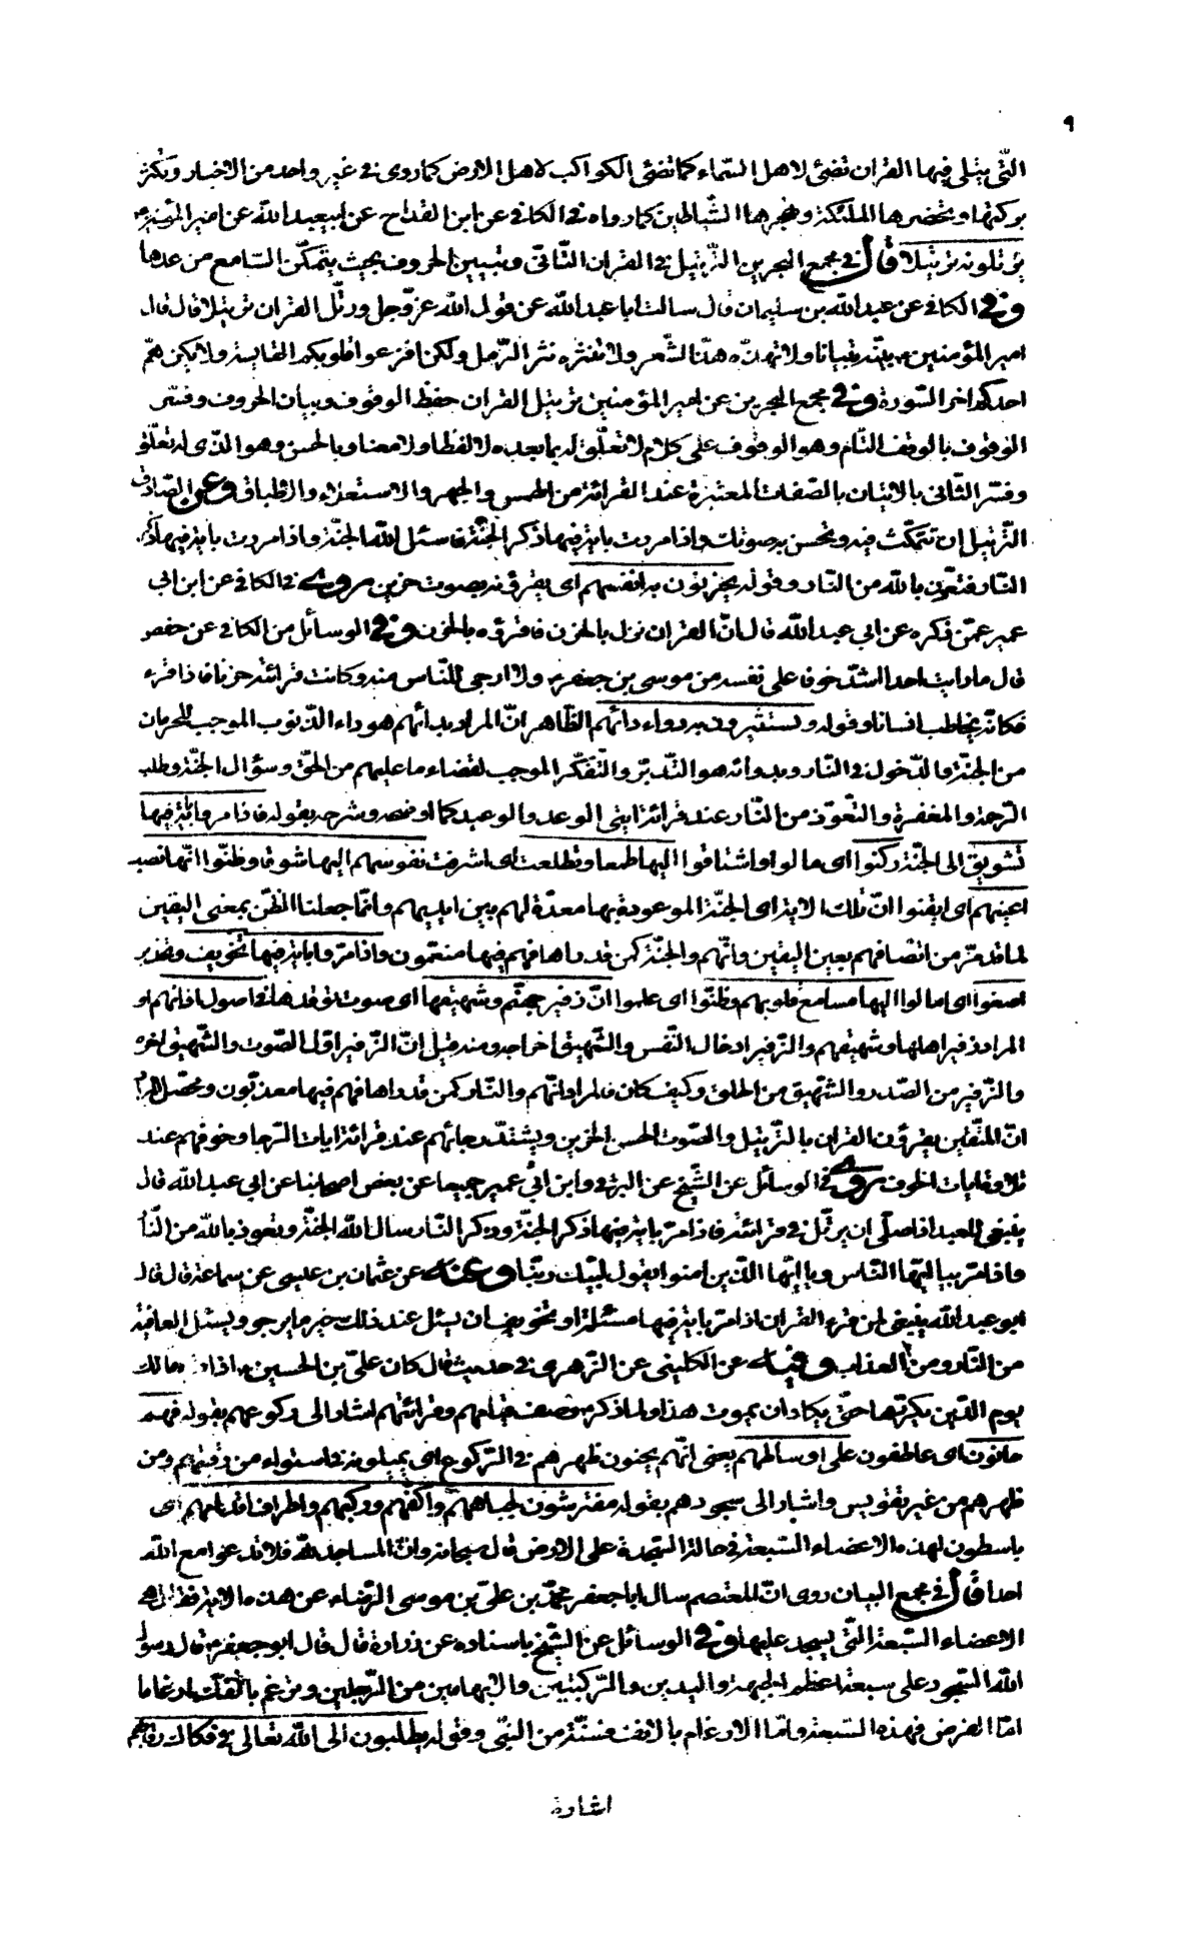 ٩
التّى يتلى فيها القران تضئ لاهل السّماء كما تضئ الكواكب لاهل الارض كما روى فى غير واحد من الاخبار وتكثر
بركتها وتحضرها الملئكة وتهجرها الشّياطين كما رواه فى الكافى عن ابن القداح عن ابيعبد الله عن امير المؤمنين
يرتلونه ترتيلا قال فى مجمع البحرين التّرتيل فى القران التّانّى وتبيين الحروف بحيث يتمكّن السّامع من عدها
وفى الكافى عن عبد الله بن سليمان قال سالت ابا عبد الله عن قول الله عزّ وجل ورتّل القران ترتيلا قال قال
امير المؤمنين بيّنه تبيانا ولا تهذّه هذّ الشّعر ولا تنثره نثر الرّمل ولكن افزعوا قلوبكم القاسية ولا يكن همّ
احدكم اخر السّورة وفى مجمع البحرين عن امير المؤمنين ترتيل القران حفظ الوقوف وبيان الحروف وفسّر
الوقوف بالوقف التّام وهو الوقوف على كلام لا تعلّق له بما بعده لا لفظا ولا معنا وبالحسن وهو الذّى له تعلّق
وفسّر الثّانى بالاتيان بالصّفات المعتبرة عند القرائة من الهمس والجهر والاستعلاء والاطباق وعن الصّادق
التّرتيل ان تتمكّث فيه وتحسن به صوتك واذا مررت باية فيها ذكر الجنّة فاسئل الله الجنّة واذا مررت باية فيها ذكر
النّار فتعوّذ بالله من النّار وقوله يحزنون به انفسهم اى يقرؤنه بصوت حزين روى فى الكافى عن ابن ابى
عمير عمّن ذكره عن ابى عبد الله قال انّ القران نزل بالحزن فاقرؤه بالحزن وفى الوسائل من الكافى عن حفص
قال ما رايت احدا اشدّ خوفا على نفسه من موسى بن جعفر ولا ارجى للنّاس منه وكانت قرائته حزنا فاذا قرء
فكانّه يخاطب انسانا وقوله ويستثيرون به دواء دائهم الظّاهر انّ المراد بدائهم هو داء الذّنوب الموجب للحرمان
من الجنّة والدّخول فى النّار وبدوائه هو التّدبّر والتّفكّر الموجب لقضاء ما عليهم من الحقّ وسؤال الجنّة وطلب
الرّحمة والمغفرة والتّعوّذ من النّار عند قرائة ايتى الوعد والوعيد كما اوضحه وشرحه بقوله فاذا مرّوا باية فيها
تشويق الى الجنّة ركنوا اى مالوا واشتاقوا اليها طمعا وتطلعت اى اشرفت نفوسهم اليها شوقا وظنّوا انّها نصب
اعينهم اى ايقنوا انّ تلك الاية اى الجنّة الموعودة بها معدّة لهم بين ايديهم وانّما جعلنا الظّن بمعنى اليقين
لما قد مرّ من اتّصافهم بعين اليقين وانّهم والجنّة كمن قد راها فهم فيها منعّمون واذا مرّوا باية فيها تخويف وتحذير
اصغوا اى امالوا اليها مسامع قلوبهم وظنّوا اى علموا انّ زفير جهنّم وشهيقها اى صوت توقدها فى اصول اذانهم او
المراد زفير اهلها وشهيقهم والزّفير ادخال النّفس والشّهيق اخراجه ومنه قيل انّ الزّفير اوّل الصّوت والشّهيق اخره
والزّفير من الصّدر والشّهيق من الحلق وكيف كان فالمراد انّهم والنّار كمن قد راها فهم فيها معذّبون ومحصّل المراد
انّ المتّقين يقرؤن القران بالتّرتيل والصّوت الحسن الحزين ويشتدّ رجائهم عند قرائة ايات الرّجا وخوفهم عند
تلاوة ايات الخوف روى فى الوسائل عن الشّيخ عن البرقى وابن ابى عمير جميعا عن بعض اصحابنا عن ابى عبد الله قال
ينبغى للعبد اذا صلّى ان يرتّل فى قرائته فاذا مرّ باية فيها ذكر الجنّة وذكر النّار سال الله الجنّة وتعوذ بالله من النّار
واذا مرّ بيا ايّها النّاس ويا ايّها الذّين امنوا يقول لبّيك ربّنا وعنه عن عثمان بن عيسى عن سماعة قال قال
ابو عبد الله ينبغى لمن قرء القران اذا مرّ باية فيها مسئلة او تخويف ان يسئل عند ذلك خير ما يرجو ويسئل العافية
من النّار ومن العذاب وفيه عن الكلينى عن الزّهرى فى حديث قال كان علىّ بن الحسين اذا قرء مالك
يوم الدّين يكرّرها حتّى يكاد ان يموت هذا ولما ذكر وصف قيامهم وقرائتهم اشار الى ركوعهم بقوله فهم
حانون اى عاطفون على اوساطهم يعنى انّهم يحنون ظهرهم فى الرّكوع اى يميلونه فى استواء من رقبتهم ومن
ظهرهم من غير تقويس واشار الى سجودهم بقوله مفترشون لجباههم واكفّهم وركبهم واطراف اقدامهم اى
باسطون لهذه الاعضاء السّبعة فى حالة السّجدة على الارض قال سبحانه وانّ المساجد للّه فلا تدعوا مع الله
احدا قال فى مجمع البيان روى انّ المعتصم سال ابا جعفر محمّد بن علىّ بن موسى الرّضاء عن هذه الاية فقال هى
الاعضاء السّبعة التّى يسجد عليها وفى الوسائل عن الشّيخ باسناده عن زرارة قال قال ابو جعفر قال رسول
الله السّجود على سبعة اعظم الجبهة واليدين والرّكبتين والابهامين من الرّجلين وترغم بانفك ارغاما
امّا الفرض فهذه السّبعة وامّا الارغام بالانف فسنّة من النّبى وقوله يطلبون الى الله تعالى فى فكاك رقابهم
اشارة